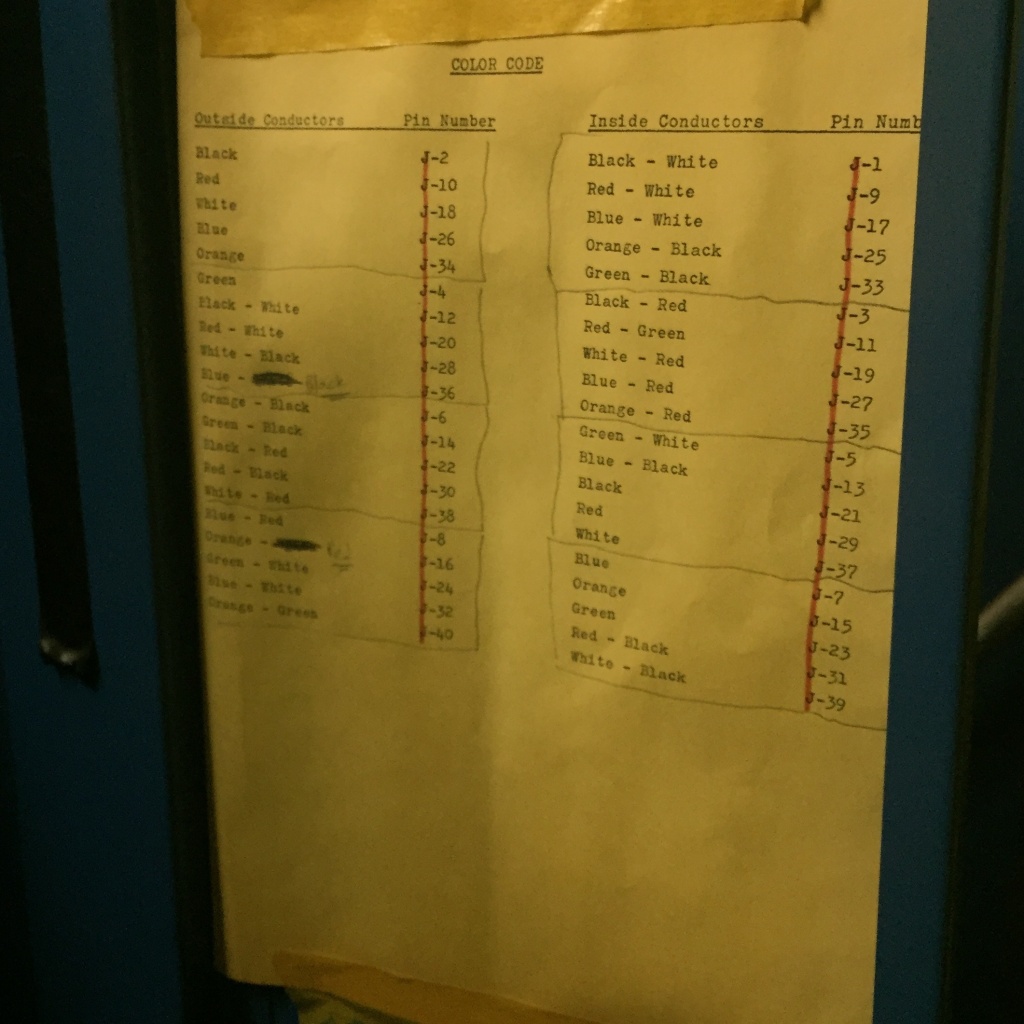 COLOR CODE
Outside Conductors Pin Number
Black J-2
Red J-10
White J-18
Blue J-26
Orange J-34
Green J-4
Black - White J-12
Red - White J-20
White - Black J-28
Blue - Black J-36
Orange - Black J-6
Green - Black J-14
Black - Red J-22
Red - Black J-30
White - Red J-38
Blue - Red J-8
Orange - J-16
Green - White J-24
Blue - White J-32
Orange - Green J-40
Inside Conductors Pin Numb
Black - White J-1
Red - White J-9
Blue - White J-17
Orange - Black J-25
Green - Black J-33
Black - Red J-3
Red - Green J-11
White - Red J-19
Blue - Red J-27
Orange - Red J-35
Green - White J-5
Blue - Black J-13
Black J-21
Red J-29
White J-37
Blue J-7
Orange J-15
Green J-23
Red - Black J-31
White - Black J-39